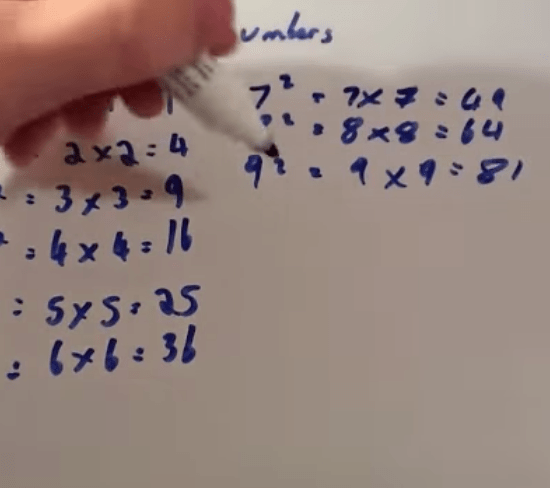 umbers
2×2=4
²=3×3=9
²=4×4=16
=5×5=25
=6×6=36
7²=7×7=49
²=8×8=64
9²=9×9=81